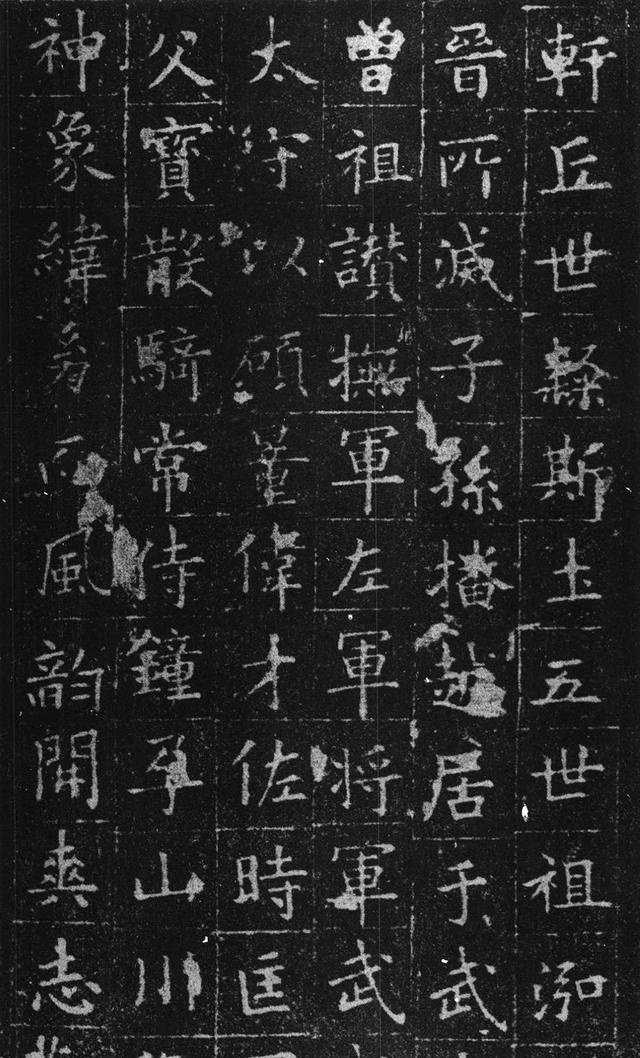 軒丘世隸斯土五世祖泓
晉所滅子孫播越居于武
曾祖讚撫軍左軍將軍武
太守以碩量偉才佐時匡
父寶散騎常侍鐘孕山川
神象緯風韻閑爽志